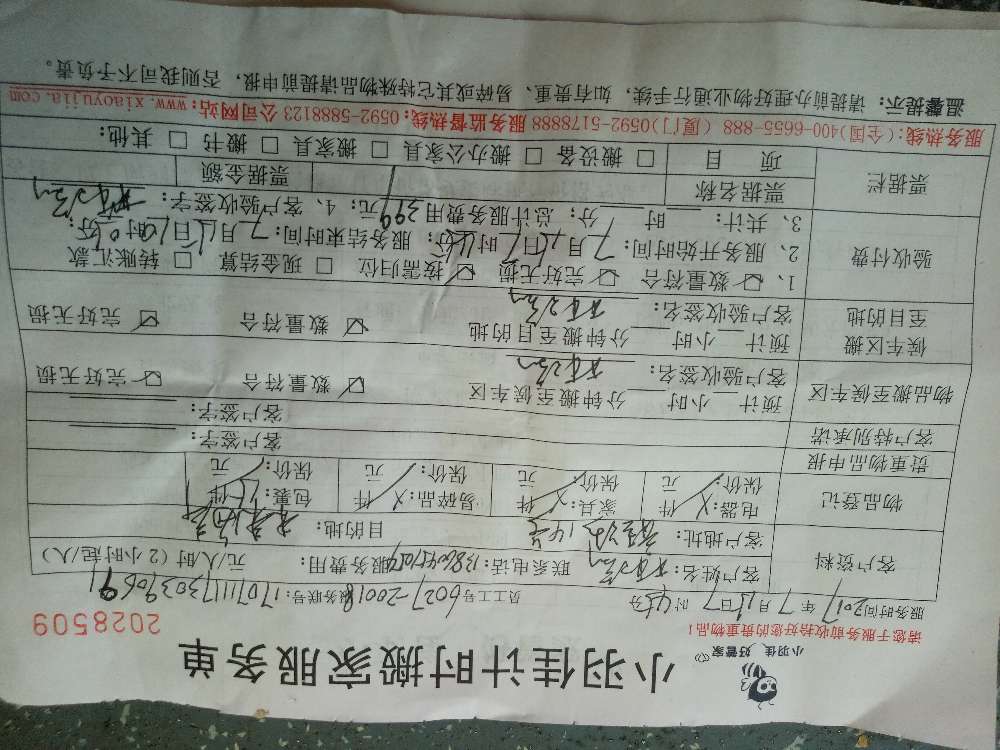 小羽佳 好管家
小羽佳计时搬家服务单
请您于服务前收拾好您的贵重物品!
2028509
服务时间:2017年7月15日7时45分 员工工号6027-20018 服务联号:170711173039069
客户资料
客户姓名: 联系电话: 服务费用: 元/人/时(2小时/起/人)
客户地址: 目的地:
物品登记
电器: X 件 家具: X 件 易碎品: X 件 包裹: 件
保价: 元 保价: 元 保价: 元 保价: 元
贵重物品申报 客户签字:
客户特别承诺 客户签字:
物品搬至候车区
预计 小时 分钟搬至候车区 ☑ 数量符合 ☑ 完好无损
客户验收签名:
候车区搬至目的地
预计 小时 分钟搬至目的地 ☑ 数量符合 ☑ 完好无损
客户验收签名:
验收付费
1、☑ 数量符合 ☑ 完好无损 ☑ 按需归位 □ 现金结算 □ 转账汇款
2、服务开始时间:7月15日7时45分; 服务结束时间:7月15日10时06分;
3、共计: 时 分; 总计服务费用399元; 4、客户验收签字:
票据栏
票据名称 票据金额
项目 □ 搬设备 □ 搬办公家具 □ 搬家具 □ 搬书 □ 其他:
服务热线:(全国)400-6655-888 (厦门)0592-5178888 服务监督热线:0592-5888123 公司网站:www.xiaoyujia.com
温馨提示: 请提前办理好物业通行手续,如有贵重、易碎或其它特殊物品请提前申报,否则我司不予负责。